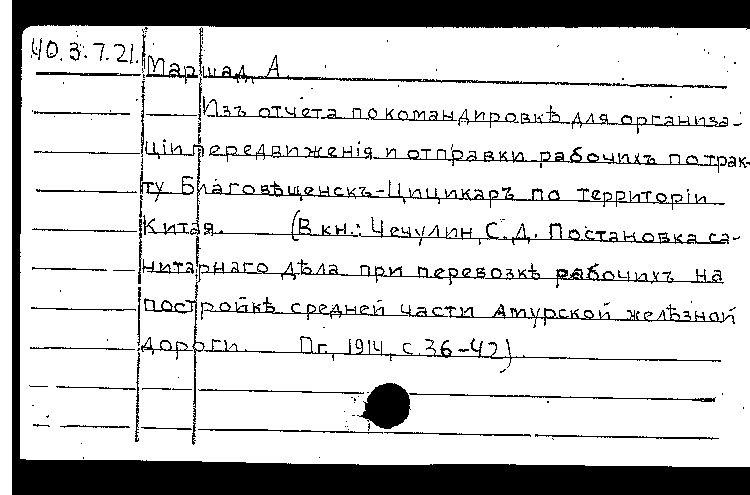 40.3.7.21.
Маршад, А.
Изъ отчета по командировкѣ для организа-
ціи передвиженія и отправки рабочихъ по трак-
ту Благовѣщенскъ-Цицикаръ по территоріи
Китая. (В кн.: Чечулин, С.Д. Постановка са-
нитарнаго дѣла при перевозкѣ рабочихъ на
постройкѣ средней части Амурской желѣзной
дороги. Пг., 1914, с. 36-42).